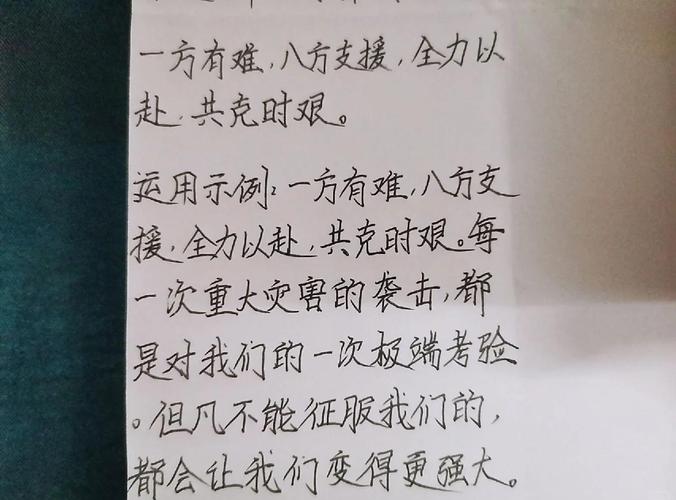 一方有难,八方支援,全力以
赴,共克时艰。
运用示例:一方有难,八方支
援,全力以赴,共克时艰。每
一次重大灾害的袭击,都
是对我们的一次极端考验
。但凡不能征服我们的,
都会让我们变得更强大。